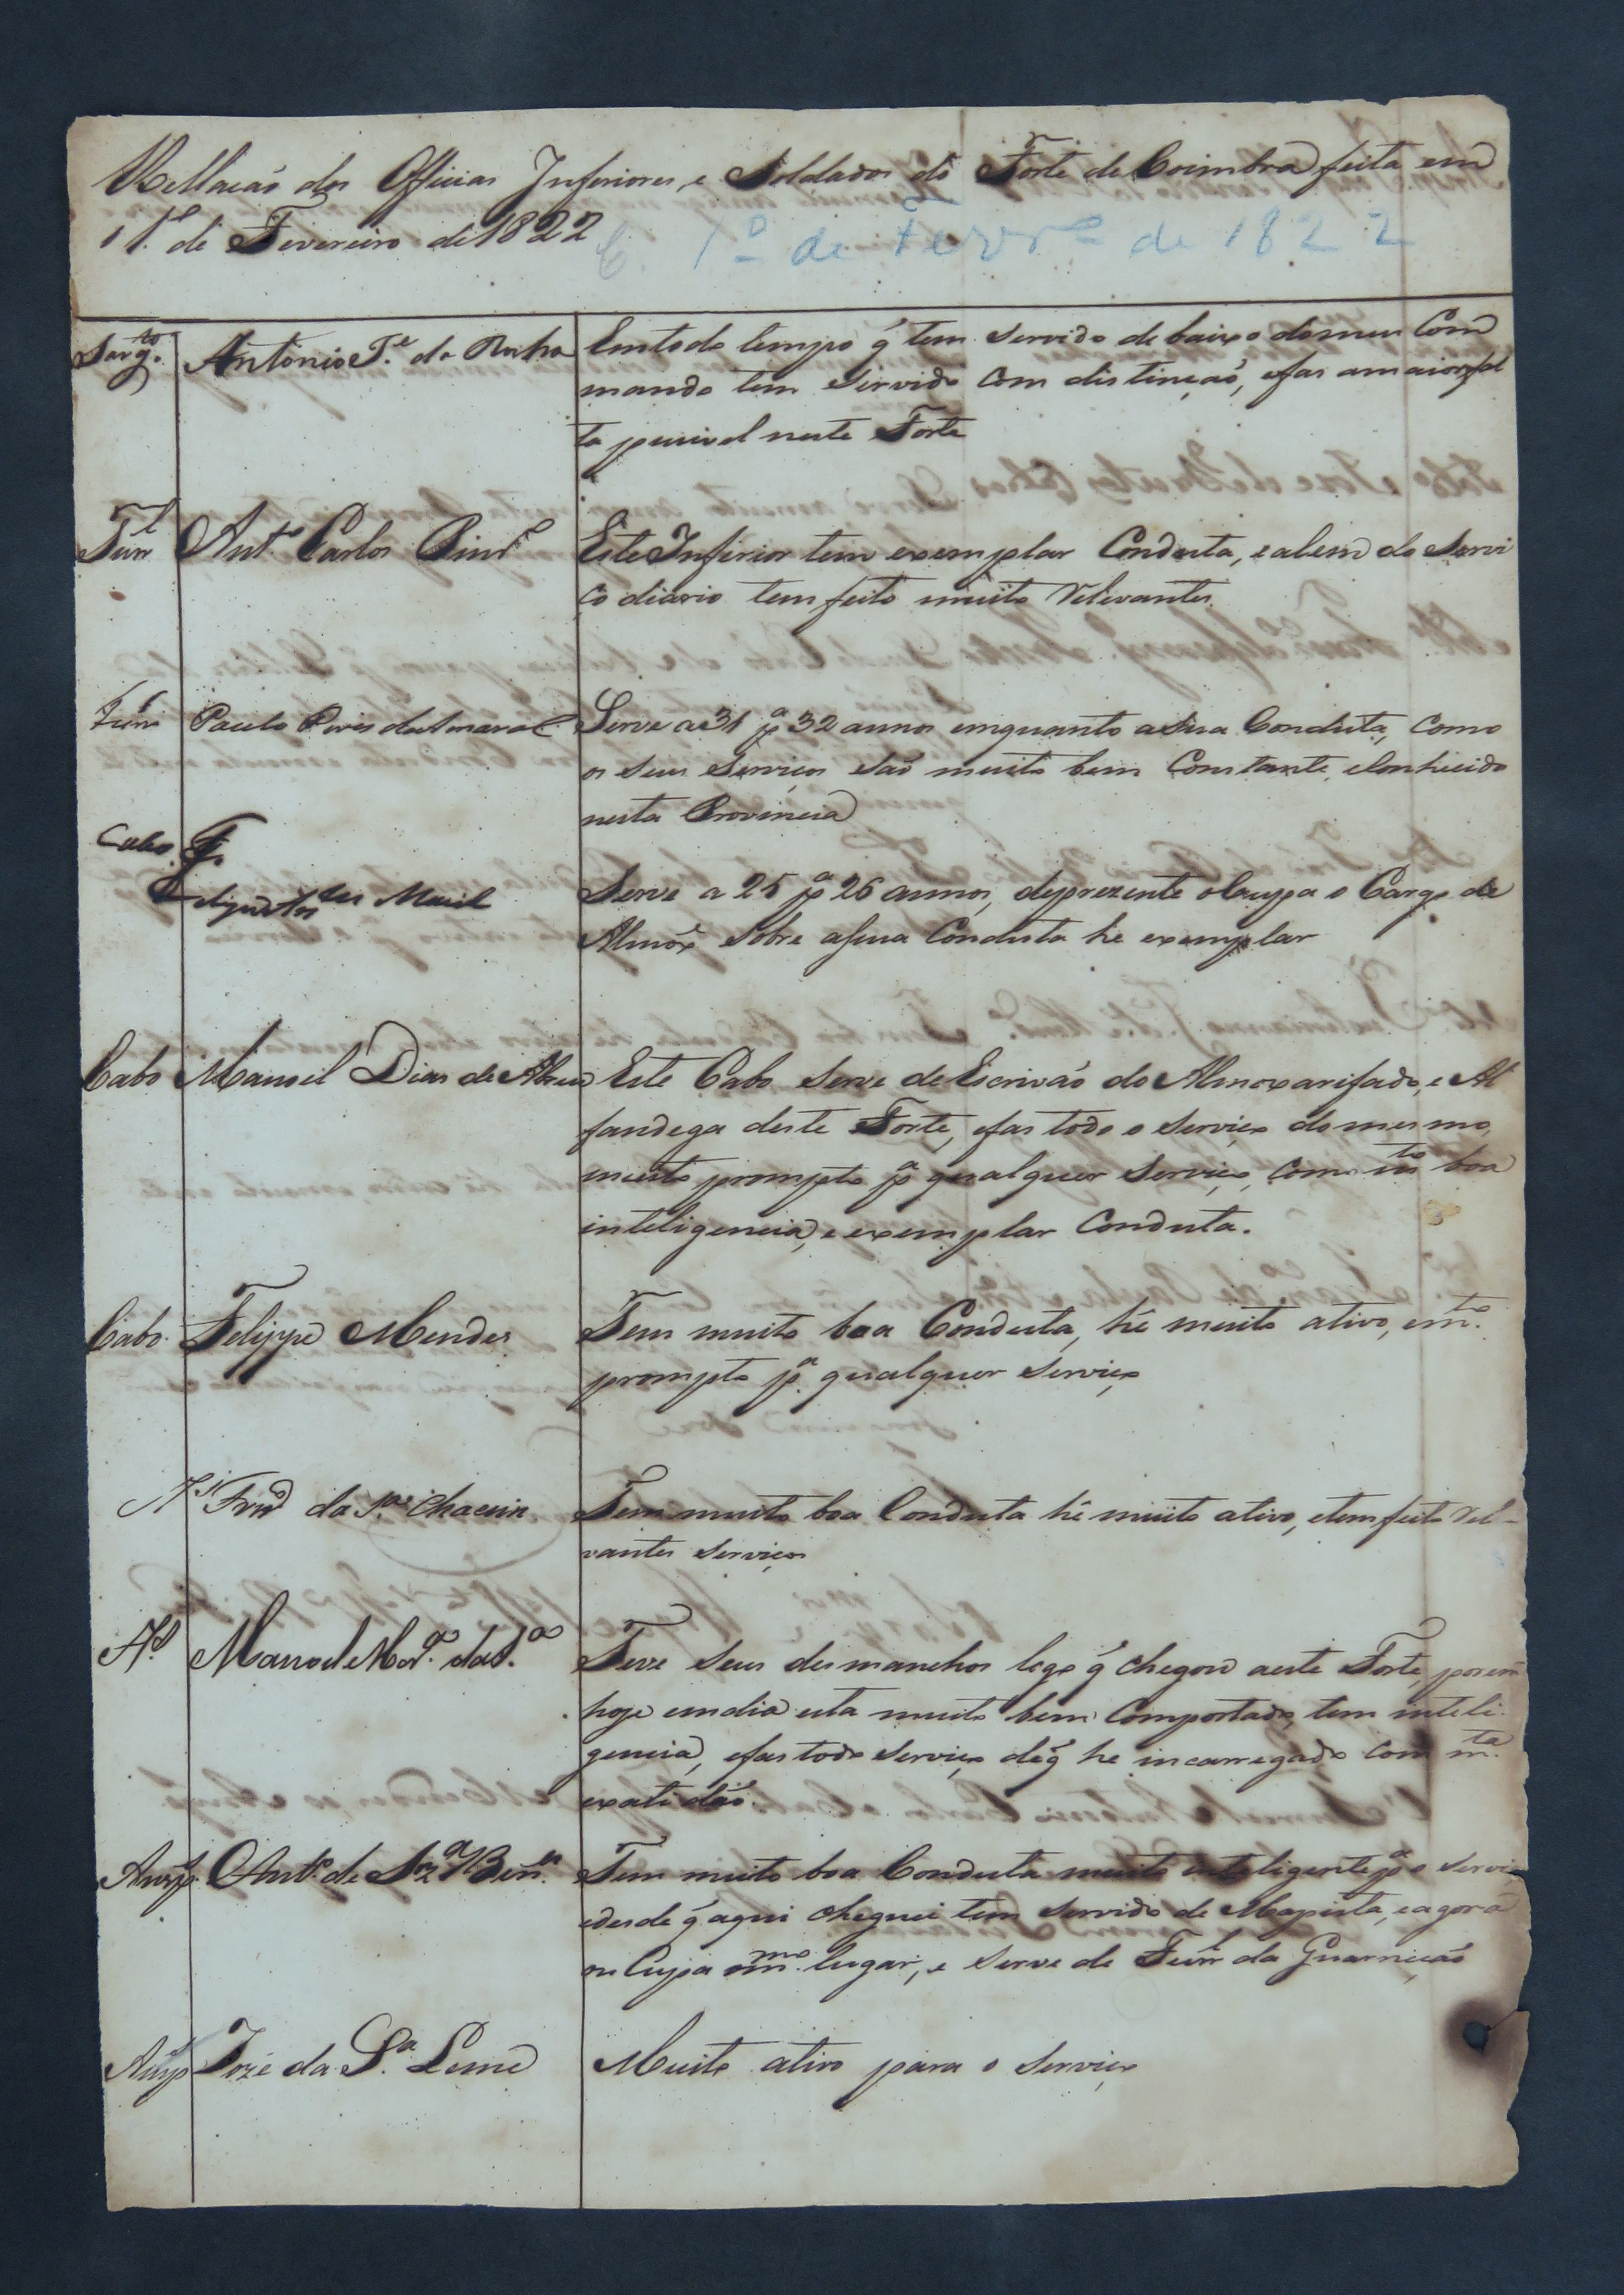 Rellacaó dos Officias Inferiores, e Soldados do Forte de Coimbra feita em
1º de Fevereiro de 1822
1º de Fevrº de 1822
Sargto. Antonio J.e da Rocha Em todo tempo q̃ tem servido debaixo do meu Com
mando tem sirvido com distincaó, e fas a maior fal
ta pussivel neste Forte
Furrl Anto. Carlos Pinrº Este Inferior tem exemplar Conduta, e alem do Servi
co diario tem feito muito relevantes.
Furrl Paulo Pires do Amaral Serve a 31 pª 32 annos emquanto a sua Conduta, como
os seus Serviços saõ muito bem Constante, e Conhecido
nesta Provincia
Cabo F.
Maciel Serve a 25 pª 26 annos, de prezente o Cuppa o Cargo de
Almoxe. Sobre a sua Conduta he exemplar
Cabo Manoel Dias de Abreu Este Cabo serve de Escrivaó do Almoxarifado, e Al
fandega deste Forte, e fas todo o serviço do mesmo,
muito prompto pª qualquer serviço, com mto boa
inteligencia, e exemplar Conduta.
Cabo Felippe Mendes Tem muito boa Conduta, hé muito ativo, e mto.
prompto pª. qualquer serviço
As Frnco da Sª Chacein Tem muito boa Conduta hé muito ativo, e tem feito rel-
vantes serviços
As. Manoel Morª. da Sª. Teve seus desmanchos logo q̃ chegou a este Forte, porem
hoje em dia esta muito bem Comportado, tem inteli-
gencia, e fas todo serviço de q̃ he incarregado com mta.
exatidáo.
Anspª Anto. de Sza Benª. Tem muito boa Conduta muito inteligente pª o servi
e desde q̃ aqui cheguei tem servido de Mapista, e agora
ou Cupa o mmo. lugar, e serve de Furrl da Guarnicaó
Ansp Jozé da Sª. Leme Muito ativo para o serviço